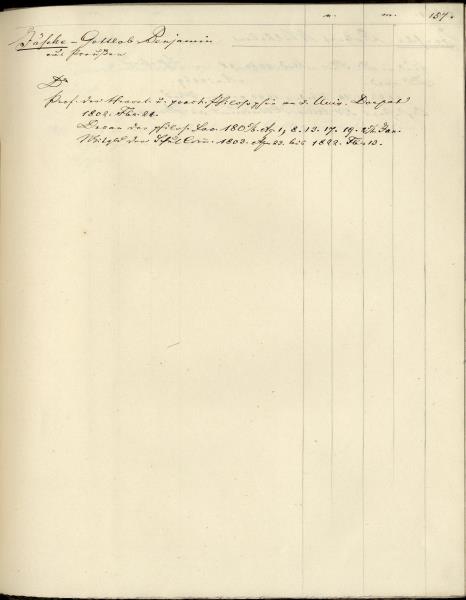 157.
Jäsche – Gottlob Benjamin
aus Preußen
Dr
Prof. der theoret. u. pract. Philosophie an d. Univ. Dorpat
1802. Fbr. 21.
Decan der philos. Fac. 8. 13. 17. 19.
Mitgld der Schulcom. 1803. Apr. 23. bis 1822. Fbr. 13.